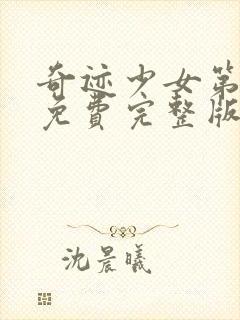 奇迹少女第
免費完整版
沈晨曦